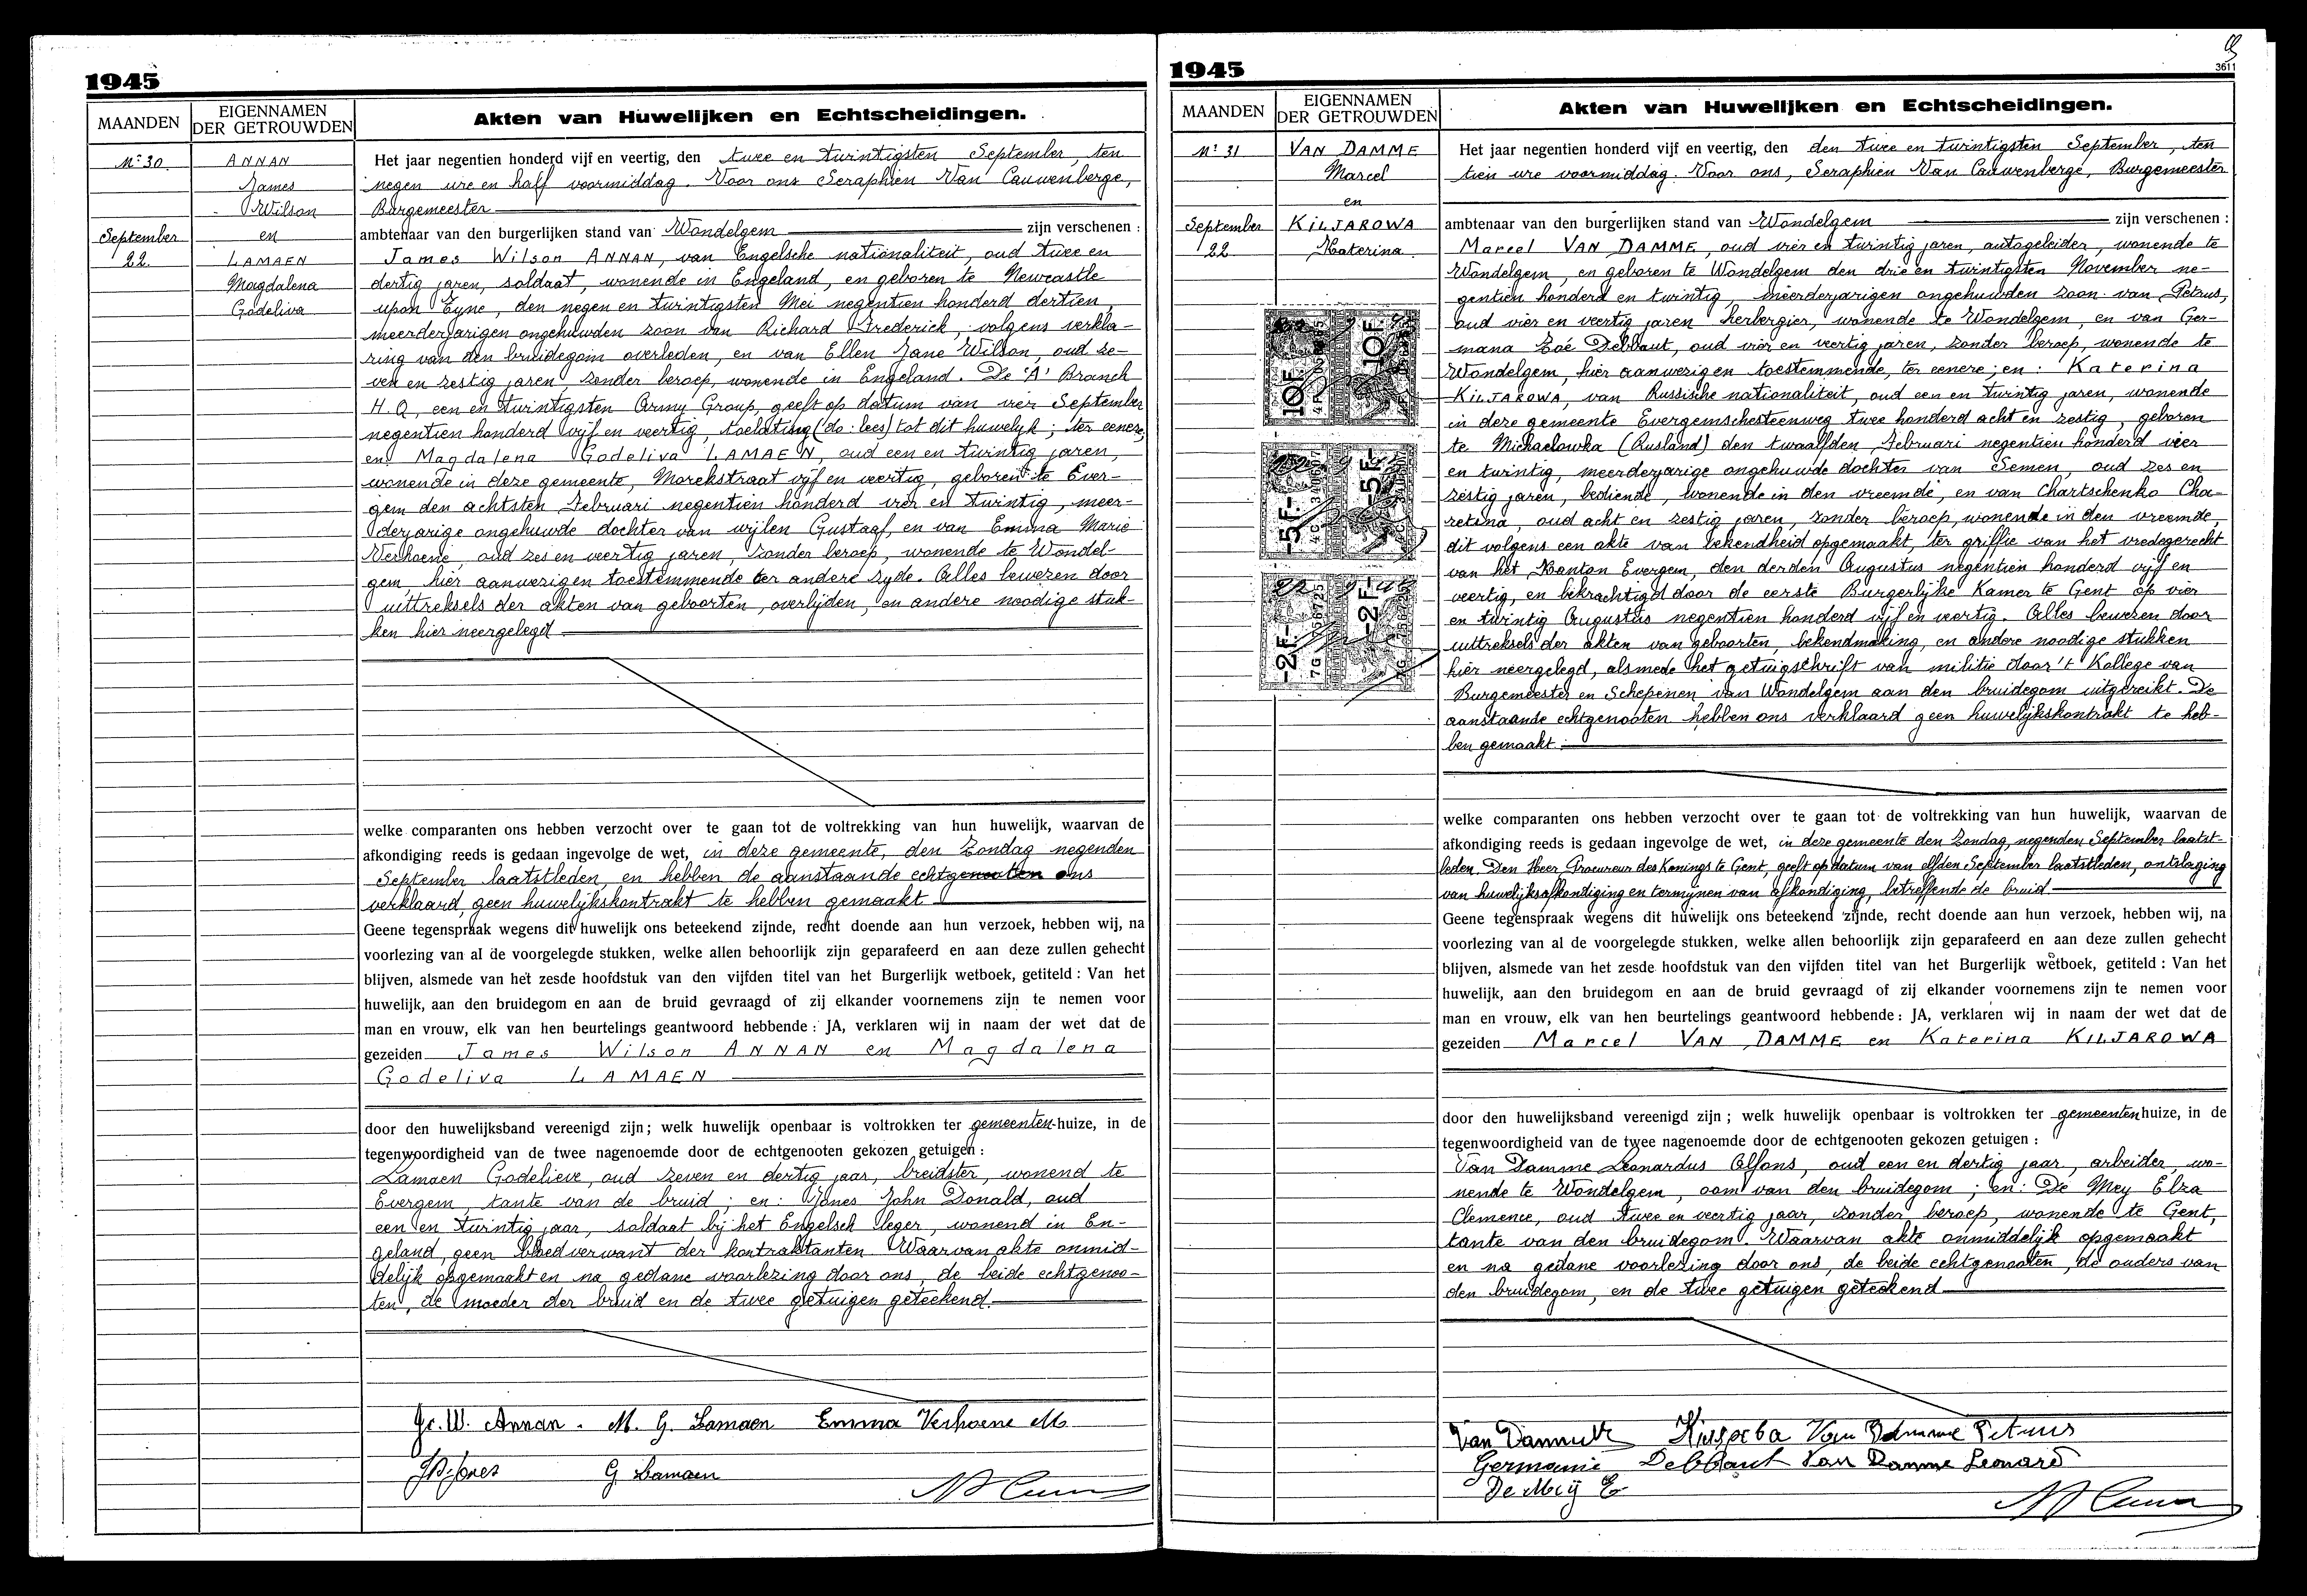 1945
MAANDEN
EIGENNAMEN
DER GETROUWDEN
Akten van Huwelijken en Echtscheidingen.
Nr 30
ANNAN
James
Wilson
en
LAMAEN
Magdalena
Godeliva
September
22
Het jaar negentien honderd vijf en veertig, den twee en twintigsten September, ten
negen ure en half voormiddag. Voor ons Seraphien Van Cauwenberge,
Burgemeester
ambtenaar van den burgerlijken stand van Wondelgem zijn verschenen :
James Wilson ANNAN, van Engelsche nationaliteit, oud twee en
dertig jaren, soldaat, wonende in Engeland, en geboren te Newcastle
upon Eyne, den negen en twintigsten Mei negentien honderd dertien,
meerderjarigen ongehuwden zoon van Richard Frederick, volgens verkla-
ring van den bruidegom overleden, en van Ellen Jane Wilson, oud ze-
ven en zestig jaren, zonder beroep, wonende in Engeland. De 'A' Branch
H.Q, een en twintigsten Army Group, geeft op datum van vier September
negentien honderd vijf en veertig, toelating (do: lees) tot dit huwelijk; ter eenere,
en: Magdalena Godeliva LAMAEN, oud een en twintig jaren,
wonende in deze gemeente, Morekstraat vijf en veertig, geboren te Ever-
gem den achtsten Februari negentien honderd vier en twintig, meer-
derjarige ongehuwde dochter van wijlen Gustaaf, en van Emma Marie
Verhoene, oud zes en veertig jaren, zonder beroep, wonende te Wondel-
gem, hier aanwezig en toestemmende ter andere zyde. Alles bewezen door
uittreksels der akten van geboorten, overlijden, en andere noodige stuk-
ken hier neergelegd
welke comparanten ons hebben verzocht over te gaan tot de voltrekking van hun huwelijk, waarvan de
afkondiging reeds is gedaan ingevolge de wet, in deze gemeente, den Zondag negenden
September laatstleden, en hebben de aanstaande echtgenooten ons
verklaard, geen huwelijkskontrakt te hebben gemaakt
Geene tegenspraak wegens dit huwelijk ons beteekend zijnde, recht doende aan hun verzoek, hebben wij, na
voorlezing van al de voorgelegde stukken, welke allen behoorlijk zijn geparafeerd en aan deze zullen gehecht
blijven, alsmede van het zesde hoofdstuk van den vijfden titel van het Burgerlijk wetboek, getiteld : Van het
huwelijk, aan den bruidegom en aan de bruid gevraagd of zij elkander voornemens zijn te nemen voor
man en vrouw, elk van hen beurtelings geantwoord hebbende : JA, verklaren wij in naam der wet dat de
gezeiden James Wilson ANNAN en Magdalena
Godeliva LAMAEN
door den huwelijksband vereenigd zijn ; welk huwelijk openbaar is voltrokken ter gemeenten-huize, in de
tegenwoordigheid van de twee nagenoemde door de echtgenooten gekozen getuigen :
Lamaen Godelieve, oud zeven en dertig jaar, breidster, wonend te
Evergem, tante van de bruid; en: Jones John Donald, oud
een en twintig jaar, soldaat bij het Engelsch leger, wonend in En-
geland, geen bloedverwant der kontraktanten. Waarvan akte onmid-
delijk opgemaakt en na gedane voorlezing door ons, de beide echtgenoo-
ten, de moeder der bruid en de twee getuigen geteekend.
Jc. W. Annan. M. G. Lamaen Emma Verhoene M.
JD Jones G Lamaen
1945
3611
MAANDEN
EIGENNAMEN
DER GETROUWDEN
Akten van Huwelijken en Echtscheidingen.
Nr 31
VAN DAMME
Marcel
en
KILJAROWA
Katerina
September
22
10F 10F
-5F- -5F-
-2F- -2F-
Het jaar negentien honderd vijf en veertig, den den twee en twintigsten September, ten
tien ure voormiddag. Voor ons, Seraphien Van Cauwenberge, Burgemeester
ambtenaar van den burgerlijken stand van Wondelgem zijn verschenen :
Marcel VAN DAMME, oud vier en twintig jaren, autogeleider, wonende te
Wondelgem, en geboren te Wondelgem den drie en twintigsten November ne-
gentien honderd en twintig, meerderjarigen ongehuwden zoon van Petrus,
oud vier en veertig jaren herbergier, wonende te Wondelgem, en van Ger-
mana Zoé Debbaut, oud vier en veertig jaren, zonder beroep, wonende te
Wondelgem, hier aanwezig en toestemmende, ter eenere; en: Katerina
KILJAROWA, van Russische nationaliteit, oud een en twintig jaren, wonende
in deze gemeente Evergemschesteenweg twee honderd acht en zestig, geboren
te Michaelowka (Rusland) den twaalfden Februari negentien honderd vier
en twintig, meerderjarige ongehuwde dochter van Semen, oud zes en
zestig jaren, bediende, wonende in den vreemde, en van Chartschenko Cha-
retina, oud acht en zestig jaren, zonder beroep, wonende in den vreemde,
dit volgens een akte van bekendheid opgemaakt, ter griffie van het vredegerecht
van het Kanton Evergem, den derden Augustus negentien honderd vijf en
veertig, en bekrachtigd door de eerste Burgerlijke Kamer te Gent op vier
en twintig Augustus negentien honderd vijf en veertig. Alles bewezen door
uittreksels der akten van geboorten, bekendmaking, en andere noodige stukken
hier neergelegd, alsmede het getuigschrift van militie door 't Kollege van
Burgemeester en Schepenen van Wondelgem aan den bruidegom uitgereikt. De
aanstaande echtgenooten hebben ons verklaard geen huwelijkskontrakt te heb-
ben gemaakt.
welke comparanten ons hebben verzocht over te gaan tot de voltrekking van hun huwelijk, waarvan de
afkondiging reeds is gedaan ingevolge de wet, in deze gemeente den Zondag, negenden September laatst-
leden. Den Heer Procureur des Konings te Gent, geeft op datum van elfden September laatstleden, ontslaging
van huwelijksafkondiging en termijnen van afkondiging, betreffende de bruid
Geene tegenspraak wegens dit huwelijk ons beteekend zijnde, recht doende aan hun verzoek, hebben wij, na
voorlezing van al de voorgelegde stukken, welke allen behoorlijk zijn geparafeerd en aan deze zullen gehecht
blijven, alsmede van het zesde hoofdstuk van den vijfden titel van het Burgerlijk wetboek, getiteld : Van het
huwelijk, aan den bruidegom en aan de bruid gevraagd of zij elkander voornemens zijn te nemen voor
man en vrouw, elk van hen beurtelings geantwoord hebbende : JA, verklaren wij in naam der wet dat de
gezeiden Marcel VAN DAMME en Katerina KILJAROWA
door den huwelijksband vereenigd zijn ; welk huwelijk openbaar is voltrokken ter gemeentenhuize, in de
tegenwoordigheid van de twee nagenoemde door de echtgenooten gekozen getuigen :
Van Damme Leonardus Alfons, oud een en dertig jaar, arbeider, wo-
nende te Wondelgem, oom van den bruidegom; en: De Mey Elza
Clemence, oud twee en veertig jaar, zonder beroep, wonende te Gent,
tante van den bruidegom. Waarvan akte onmiddelijk opgemaakt
en na gedane voorlezing door ons, de beide echtgenooten, de ouders van
den bruidegom, en de twee getuigen geteekend
Van Damme Van Damme Petrus
Germaine Debbaut Van Damme Leonard
De Meÿ E